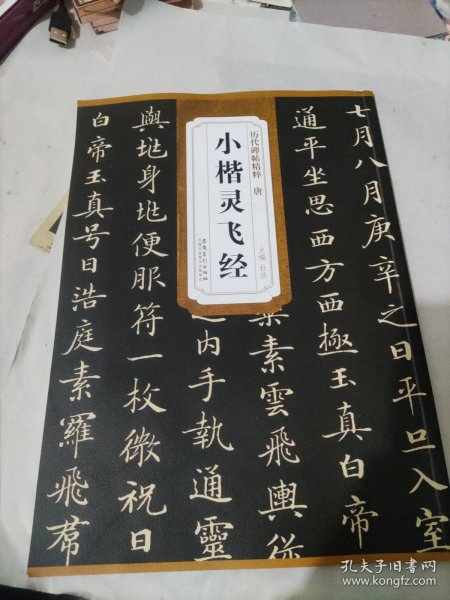 七月八月庚辛之日平旦入室
通平坐思西方西極玉真白帝
素雲飛輿從
之内手執通靈
與兆身兆便服符一枚微祝曰
白帝玉真号曰浩庭素羅飛帬
历代碑帖精粹 唐
小楷灵飞经
主编 杜浩
安徽美术出版社
孔夫子旧书网
www.kongfz.com